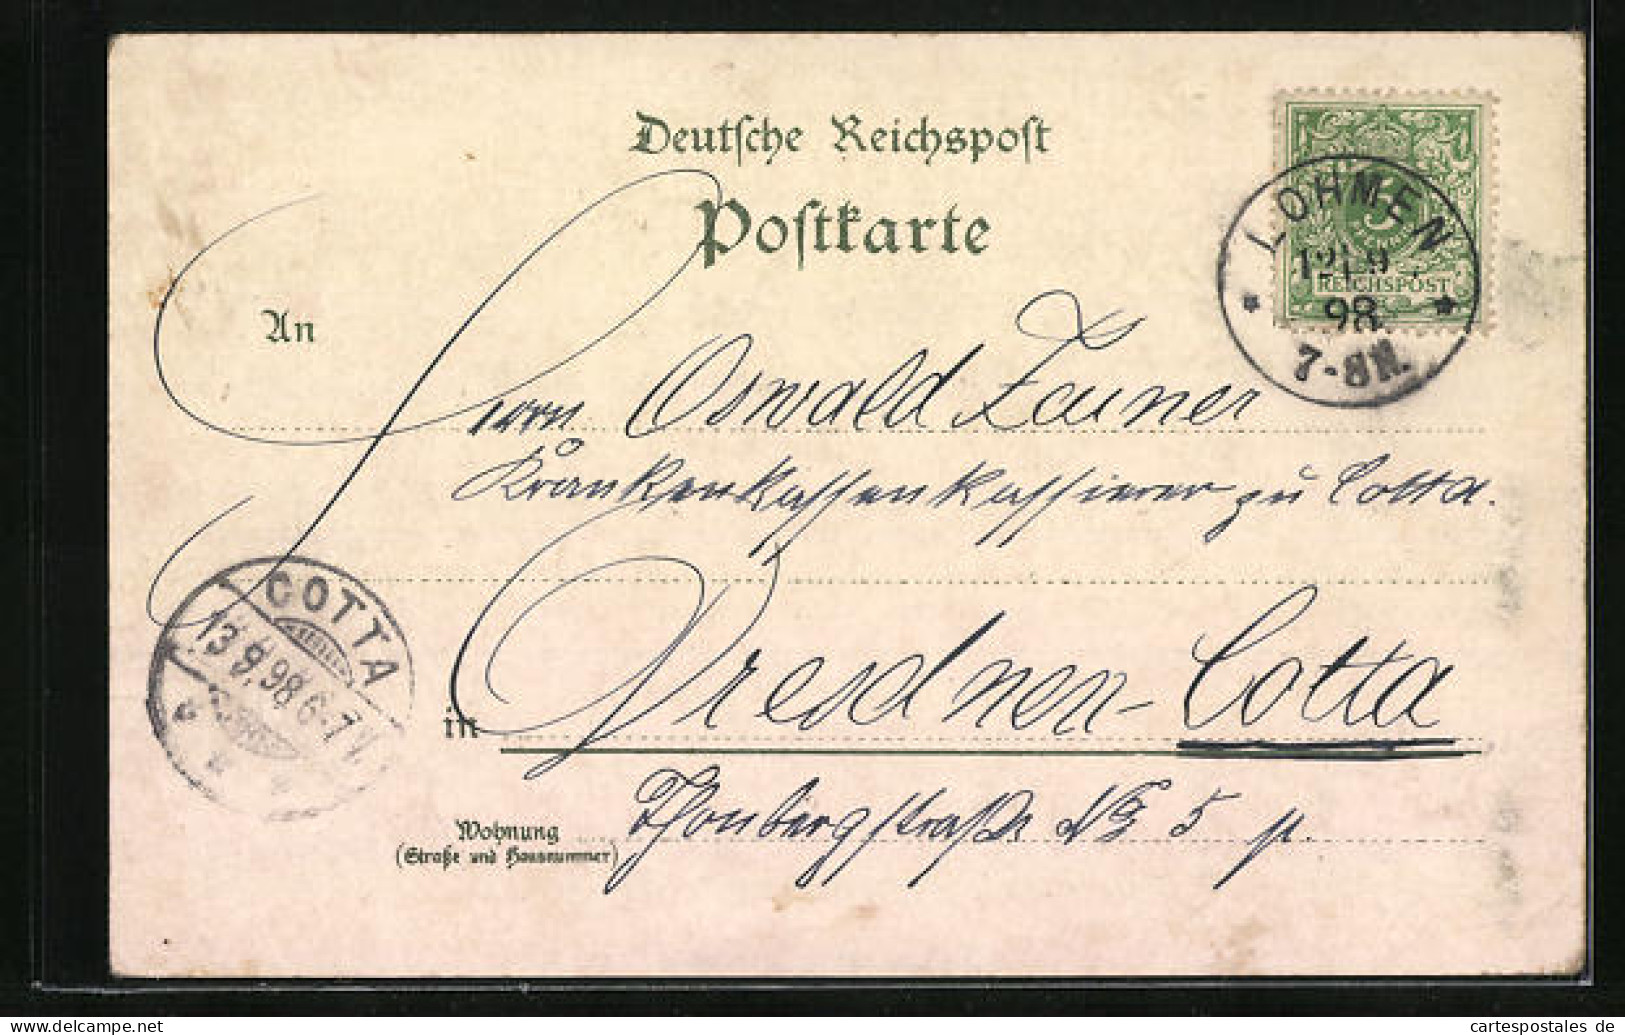 Deutsche Reichspost
Postkarte
LOHMEN
12 9
98
7-8N.
5
REICHSPOST
An
Herrn Oswald Zeuner
Krankenkassenkassierer zu Cotta.
COTTA
13.9.98 6-7V.
in Dresden-Cotta
Wohnung
(Straße und Hausnummer)
straße No 5 p.
www.cartespostales.de